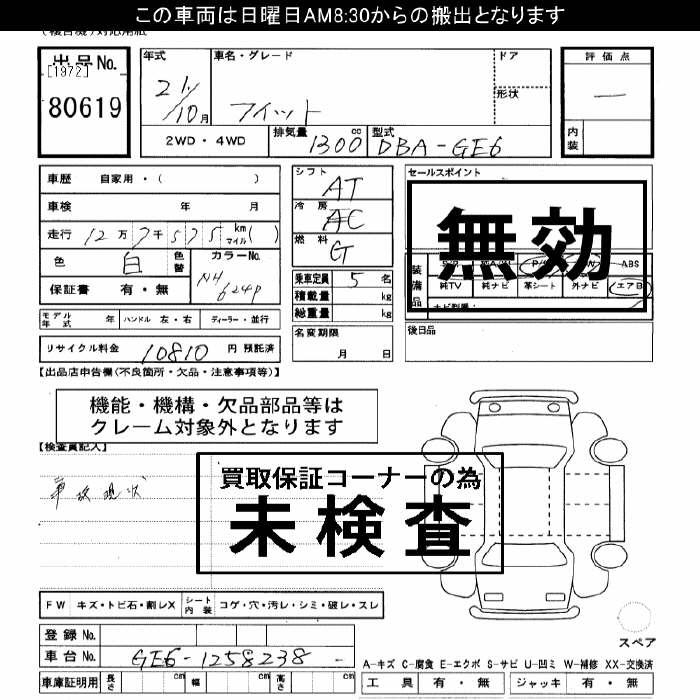 この車両は日曜日AM8:30からの搬出となります
出品No.
[1972]
80619
年式
21/10月
車名・グレード
フィット
ドア
形状
評価点
—
内装
2WD・4WD
排気量
1300cc
型式
DBA-GE6
車歴 自家用・( )
車検 年 月
走行 12万7千575 km マイル( )
色 白 色替
カラーNo.
NH624P
保証書 有・無
モデル年式 年 ハンドル 左・右 ディーラー・並行
リサイクル料金 10810 円 預託済
シフト AT
冷房 AC
燃料 G
乗車定員 5名
積載量 kg
総重量 kg
名変期限
月 日
セールスポイント
無効
装備品
ABS
純TV 純ナビ 革シート 外ナビ エアB
後日品
【出品店申告欄(不良箇所・欠品・注意事項等)】
機能・機構・欠品部品等は
クレーム対象外となります
【検査員記入】
事故現状
買取保証コーナーの為
未検査
FW キズ・トビ石・割レX シート内装 コゲ・穴・汚レ・シミ・破レ・スレ
スペア
登録No.
車台No. GE6-1258238
A-キズ C-腐食 E-エクボ S-サビ U-凹ミ W-補修 XX-交換済
車庫証明用 長さ cm 幅 cm 高さ cm
工具 有・無 ジャッキ 有・無